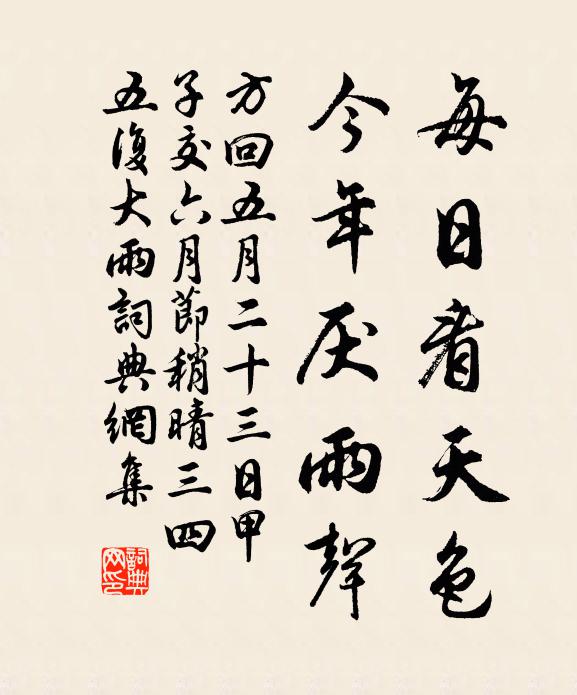 每日看天色
今年厌雨聲
方回五月二十三日甲
子交六月節稍晴三四
五復大雨詞典網集
詞典
网印